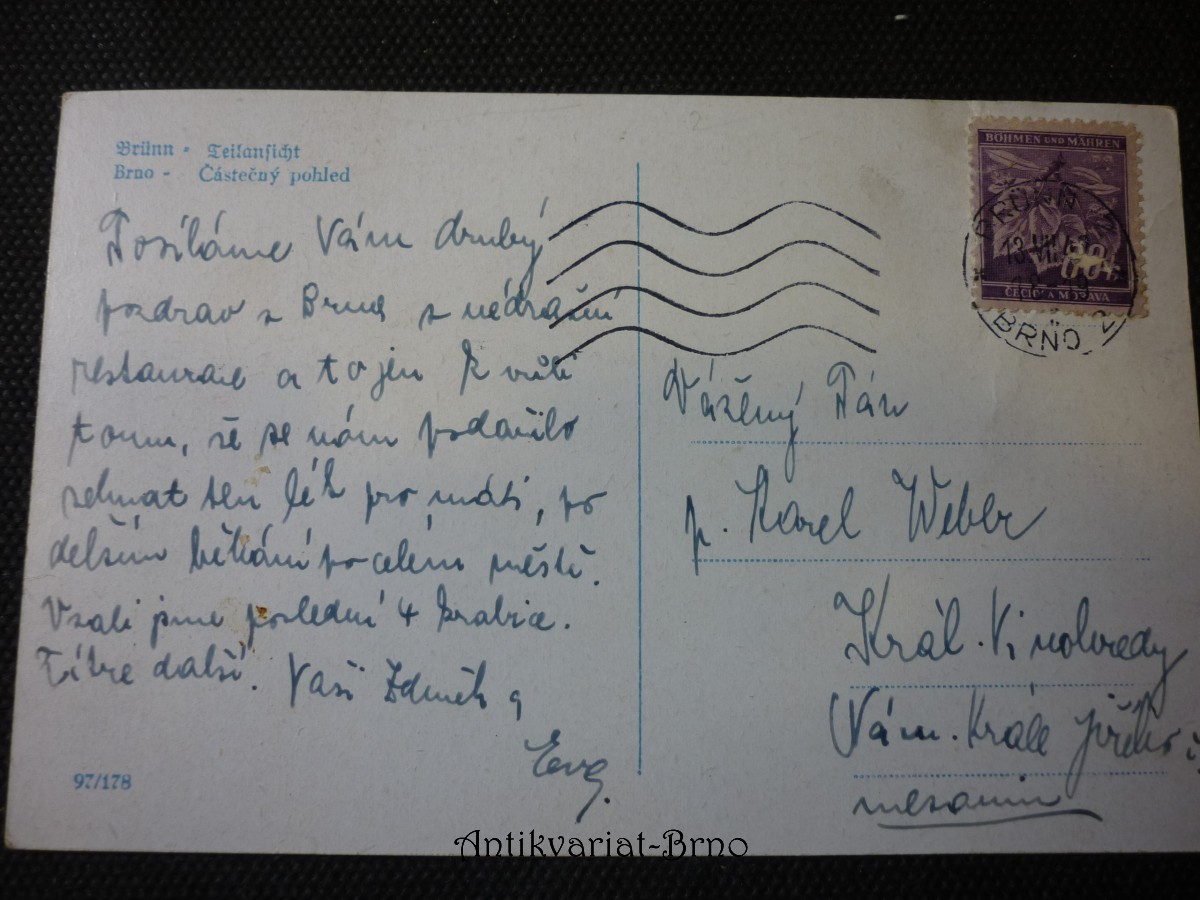 Brünn - Teilansicht
Brno - Částečný pohled
Posíláme Vám druhý
pozdrav z Brna z nádražní
restaurace a to jen k vůli
tomu, že se nám podařilo
sehnat ten lék pro máti, po
delším běhání po celém městě.
Vzali jsme poslední 4 krabice.
další. Vaši Zdeněk a
Eva.
97/178
BÖHMEN UND MÄHREN
ČECHY A MORAVA
BRÜNN 2
13.VII.
BRNO 2
Vážený Pán
p. Karel Weber
Král. Vinohrady
Nám. Krále Jiřího
mezanin
Antikvariat-Brno